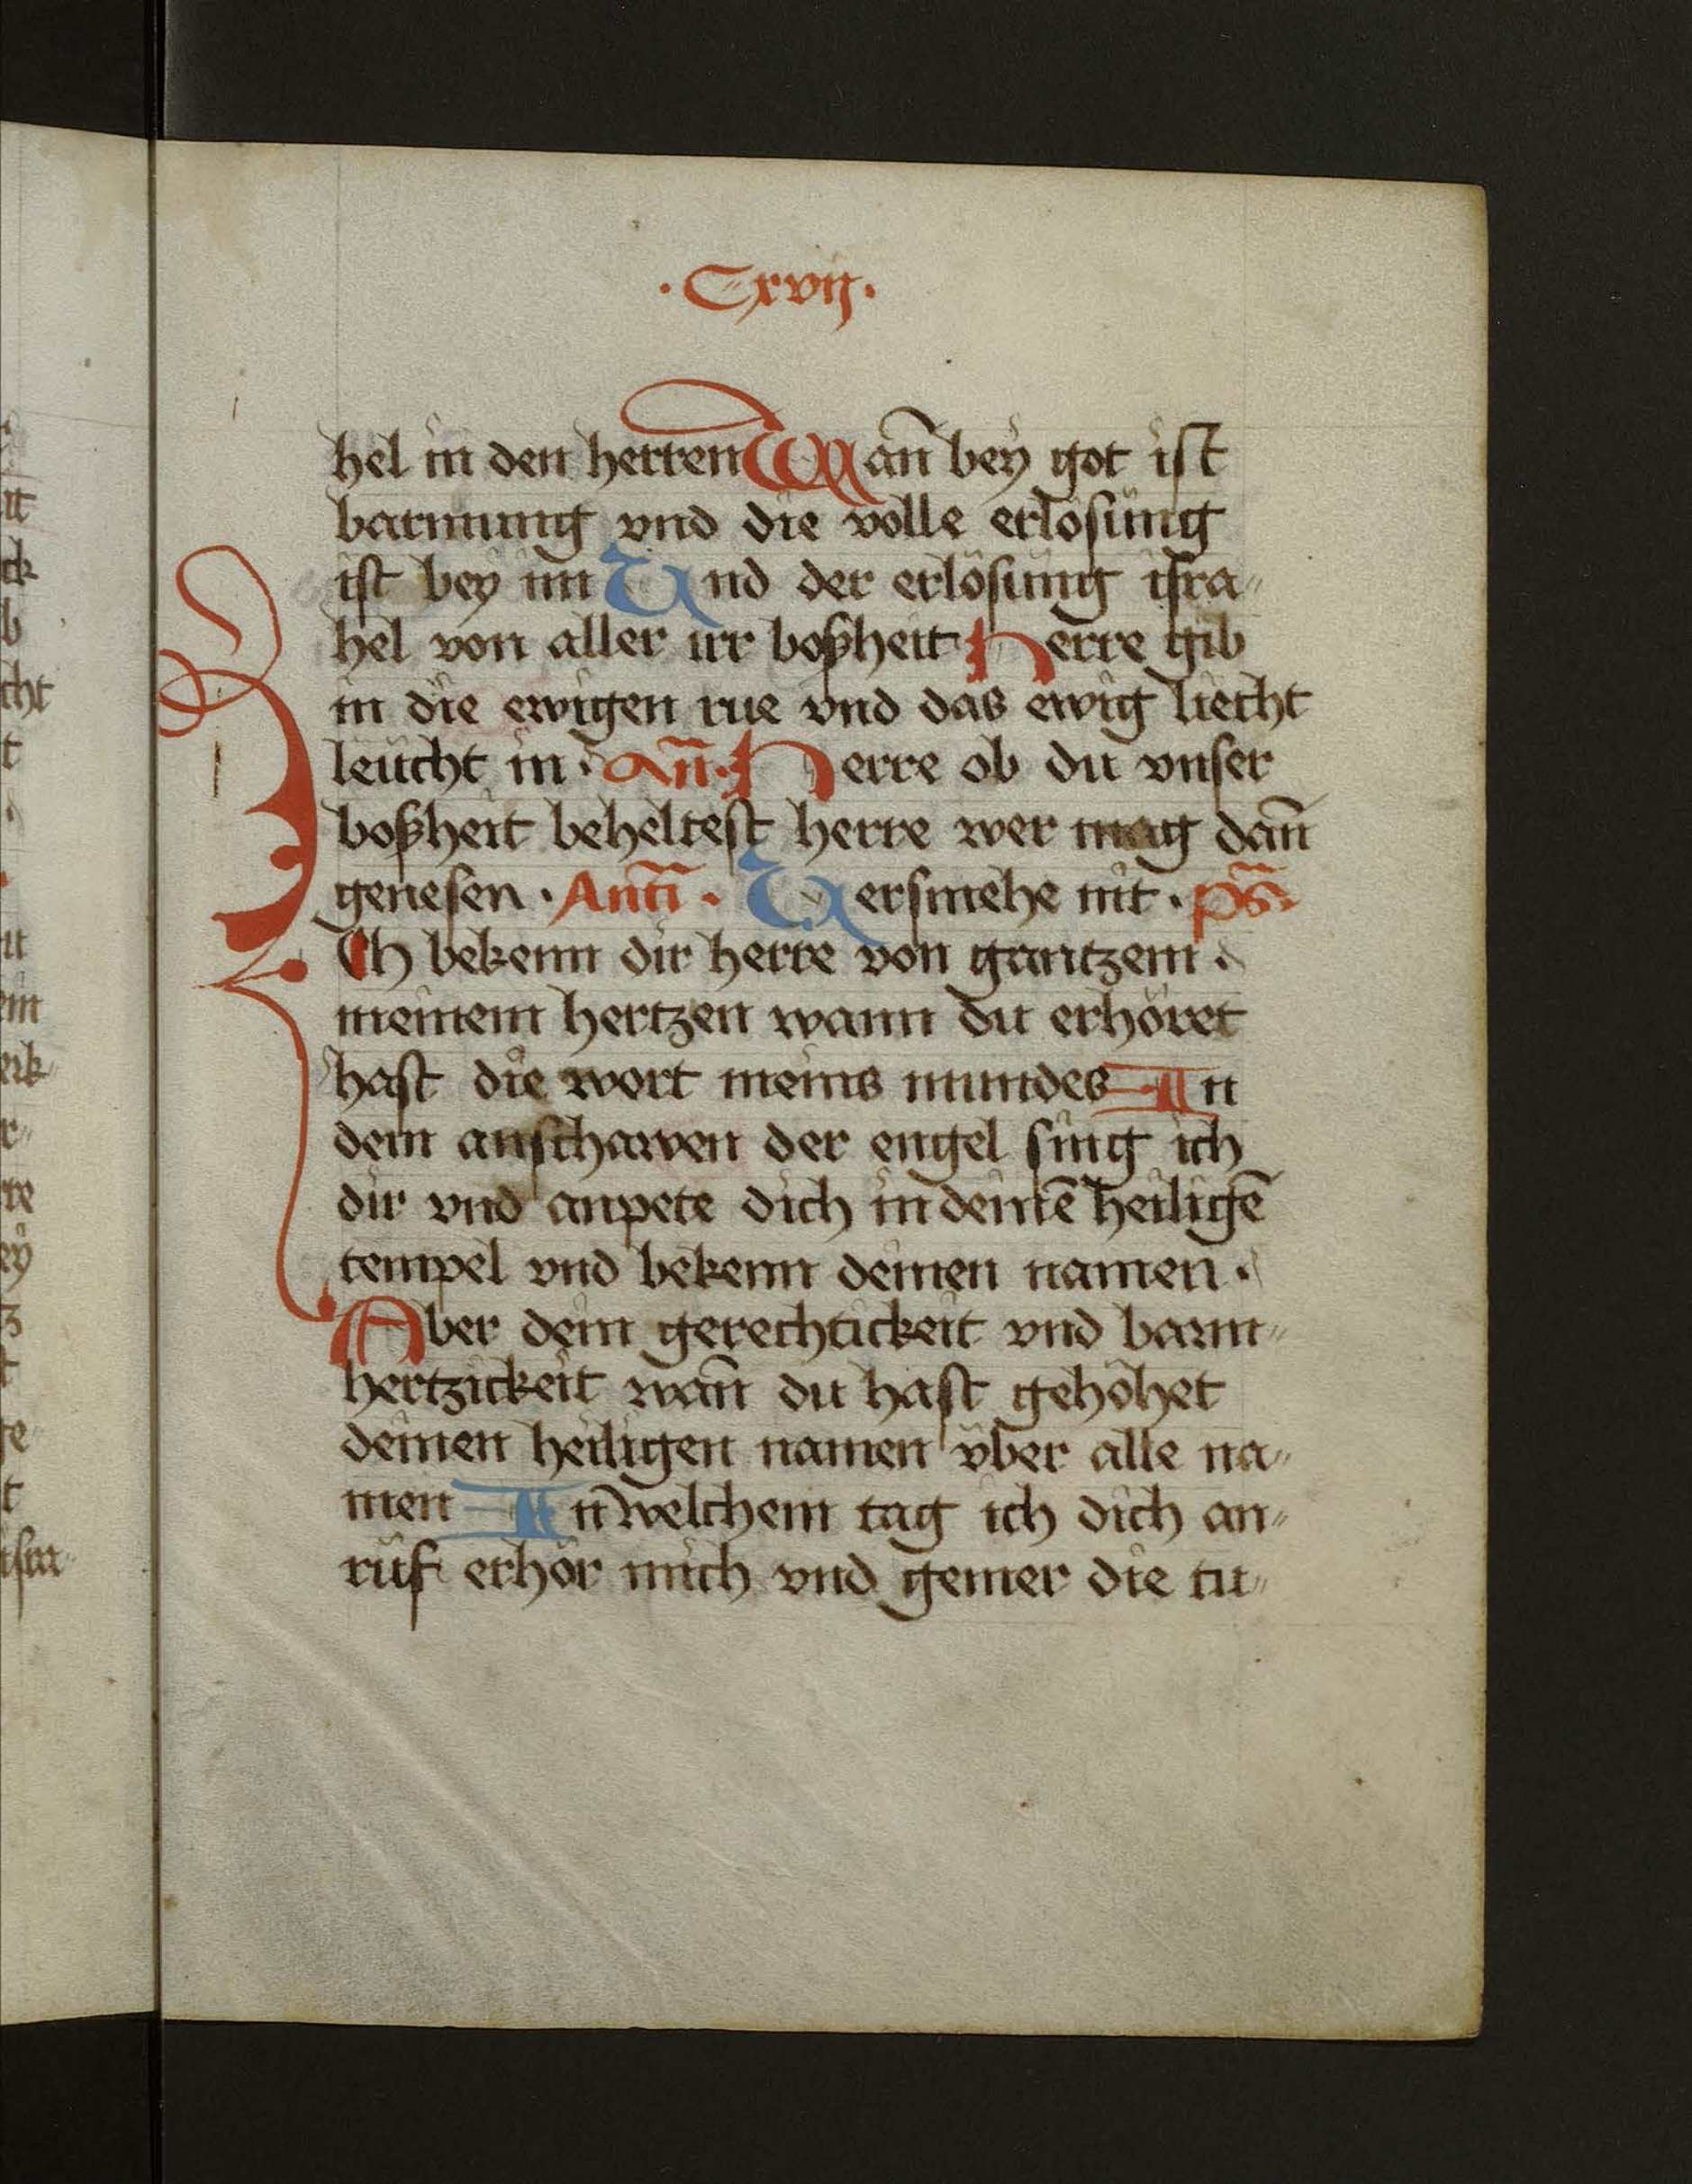 ·Cxvij·
hel in den herren Wañ bey got ist
barmung vnd die volle erlosung
ist bey im Und der erlösung isra„
hel von aller irr boßheit Herre gib
in die ewigen rue vnd das ewig liecht
leucht in · Añ · Herre ob du vnser
boßheit beheltest herre wer mag dañ
genesen · Anti̅ · Versmehe nit · ps̅
Ich bekenn dir herre von gantzem
meinem hertzen wann du erhöret
hast die wort meins mundes In
dem anschawen der engel sing ich
dir vnd anpete dich in deinē heiligē
tempel vnd bekenn deinen namen ·
Aber dein gerechtickeit vnd barm„
hertzickeit wañ du hast gehöhet
deinen heiligen namen vber alle na„
men In welchem tag ich dich an„
ruf erhör mich vnd gemer die tu„